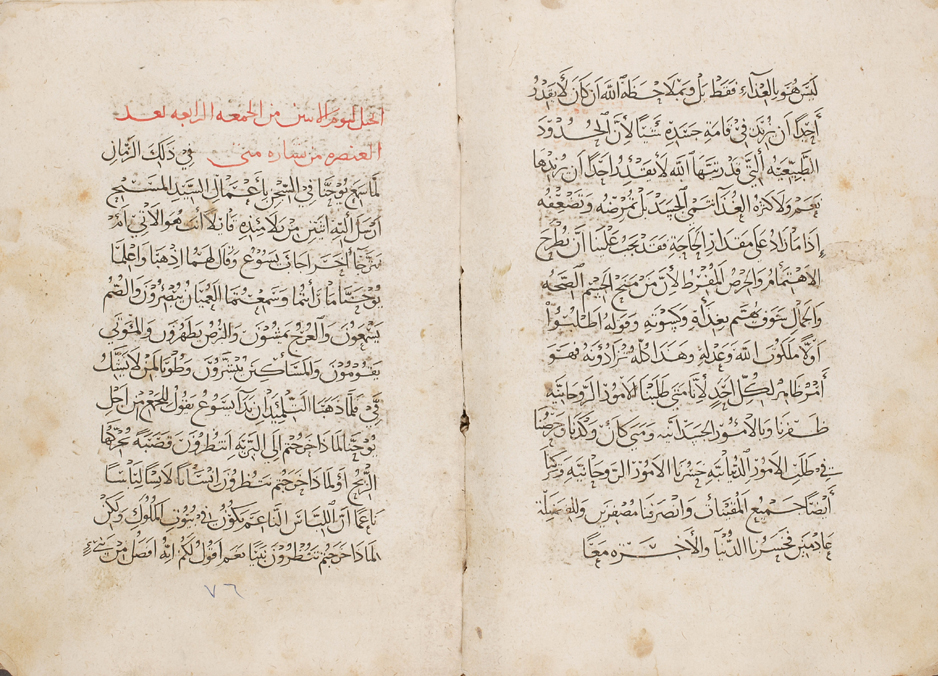 ليس هو بالغذاء فقط بل وبملاحظة الله ان كان لا يقدر
احدا ان يزيد في قامة جسده شيا لان الحدود
الطبيعيه التي قد رسمها الله لا يقدر احدا ان يزيدها
نعم ولا كثره الغذا تنمي الجسد بل تمرضه وتضعفه
اذا ما زاد على مقدار الحاجة فقد يجب علينا ان نطرح
الاهتمام والحرص المفرط لان من منح الجسم الصحه
والكمال سوف يهتم بغدأه وكسوته وقوله اطلبوا
اولا ملكوت الله وعدله وهذا كله تزادونه فهو
امر ظاهر لكل احد لاننا متى طلبنا الامور الروحانيه
ظفرنا بالامور الجسدانيه ومتى كان وكدنا وحرصنا
في طلب الامور الدنياييه خسرنا الامور الروحانيه وتركنا
ايضا جميع المقتنيات وانصرفنا مصفرين وللفضيلة
عادمين فخسرنا الدنيا والأخره معا
انجيل ليوم الاثنين من الجمعه الرابعه بعد
العنصره من بشاره متى في ذلك الزمان
لما سمع يوحنا في السجن باعمال السيد المسيح
ارسل اليه اثنين من تلاميذه قايلا انت هو الاتي ام
نترجا اخر اجاب يسوع وقال لهما اذهبا واعلما
يوحنا ما رأيتما وسمعتما العميان يبصرون والصم
يسمعون والعرج يمشون والبرص يطهرون والموتى
يقومون والمساكين يبشرون وطوبا لمن لا يشك
فيّ فلما ذهبا التلميذان بدا يسوع يقول للجمع من اجل
يوحنا لماذا خرجتم الى البريه اتنظرون قصبة تحركها
الريح او لماذا خرجتم تنظرون انسانا لابسا لباسا
ناعما ان اللباس الناعم يكون في بيوت الملوك ولكن
لماذا خرجتم تنظرون نبيا نعم اقول لكم انه افضل من نبي
٧٦